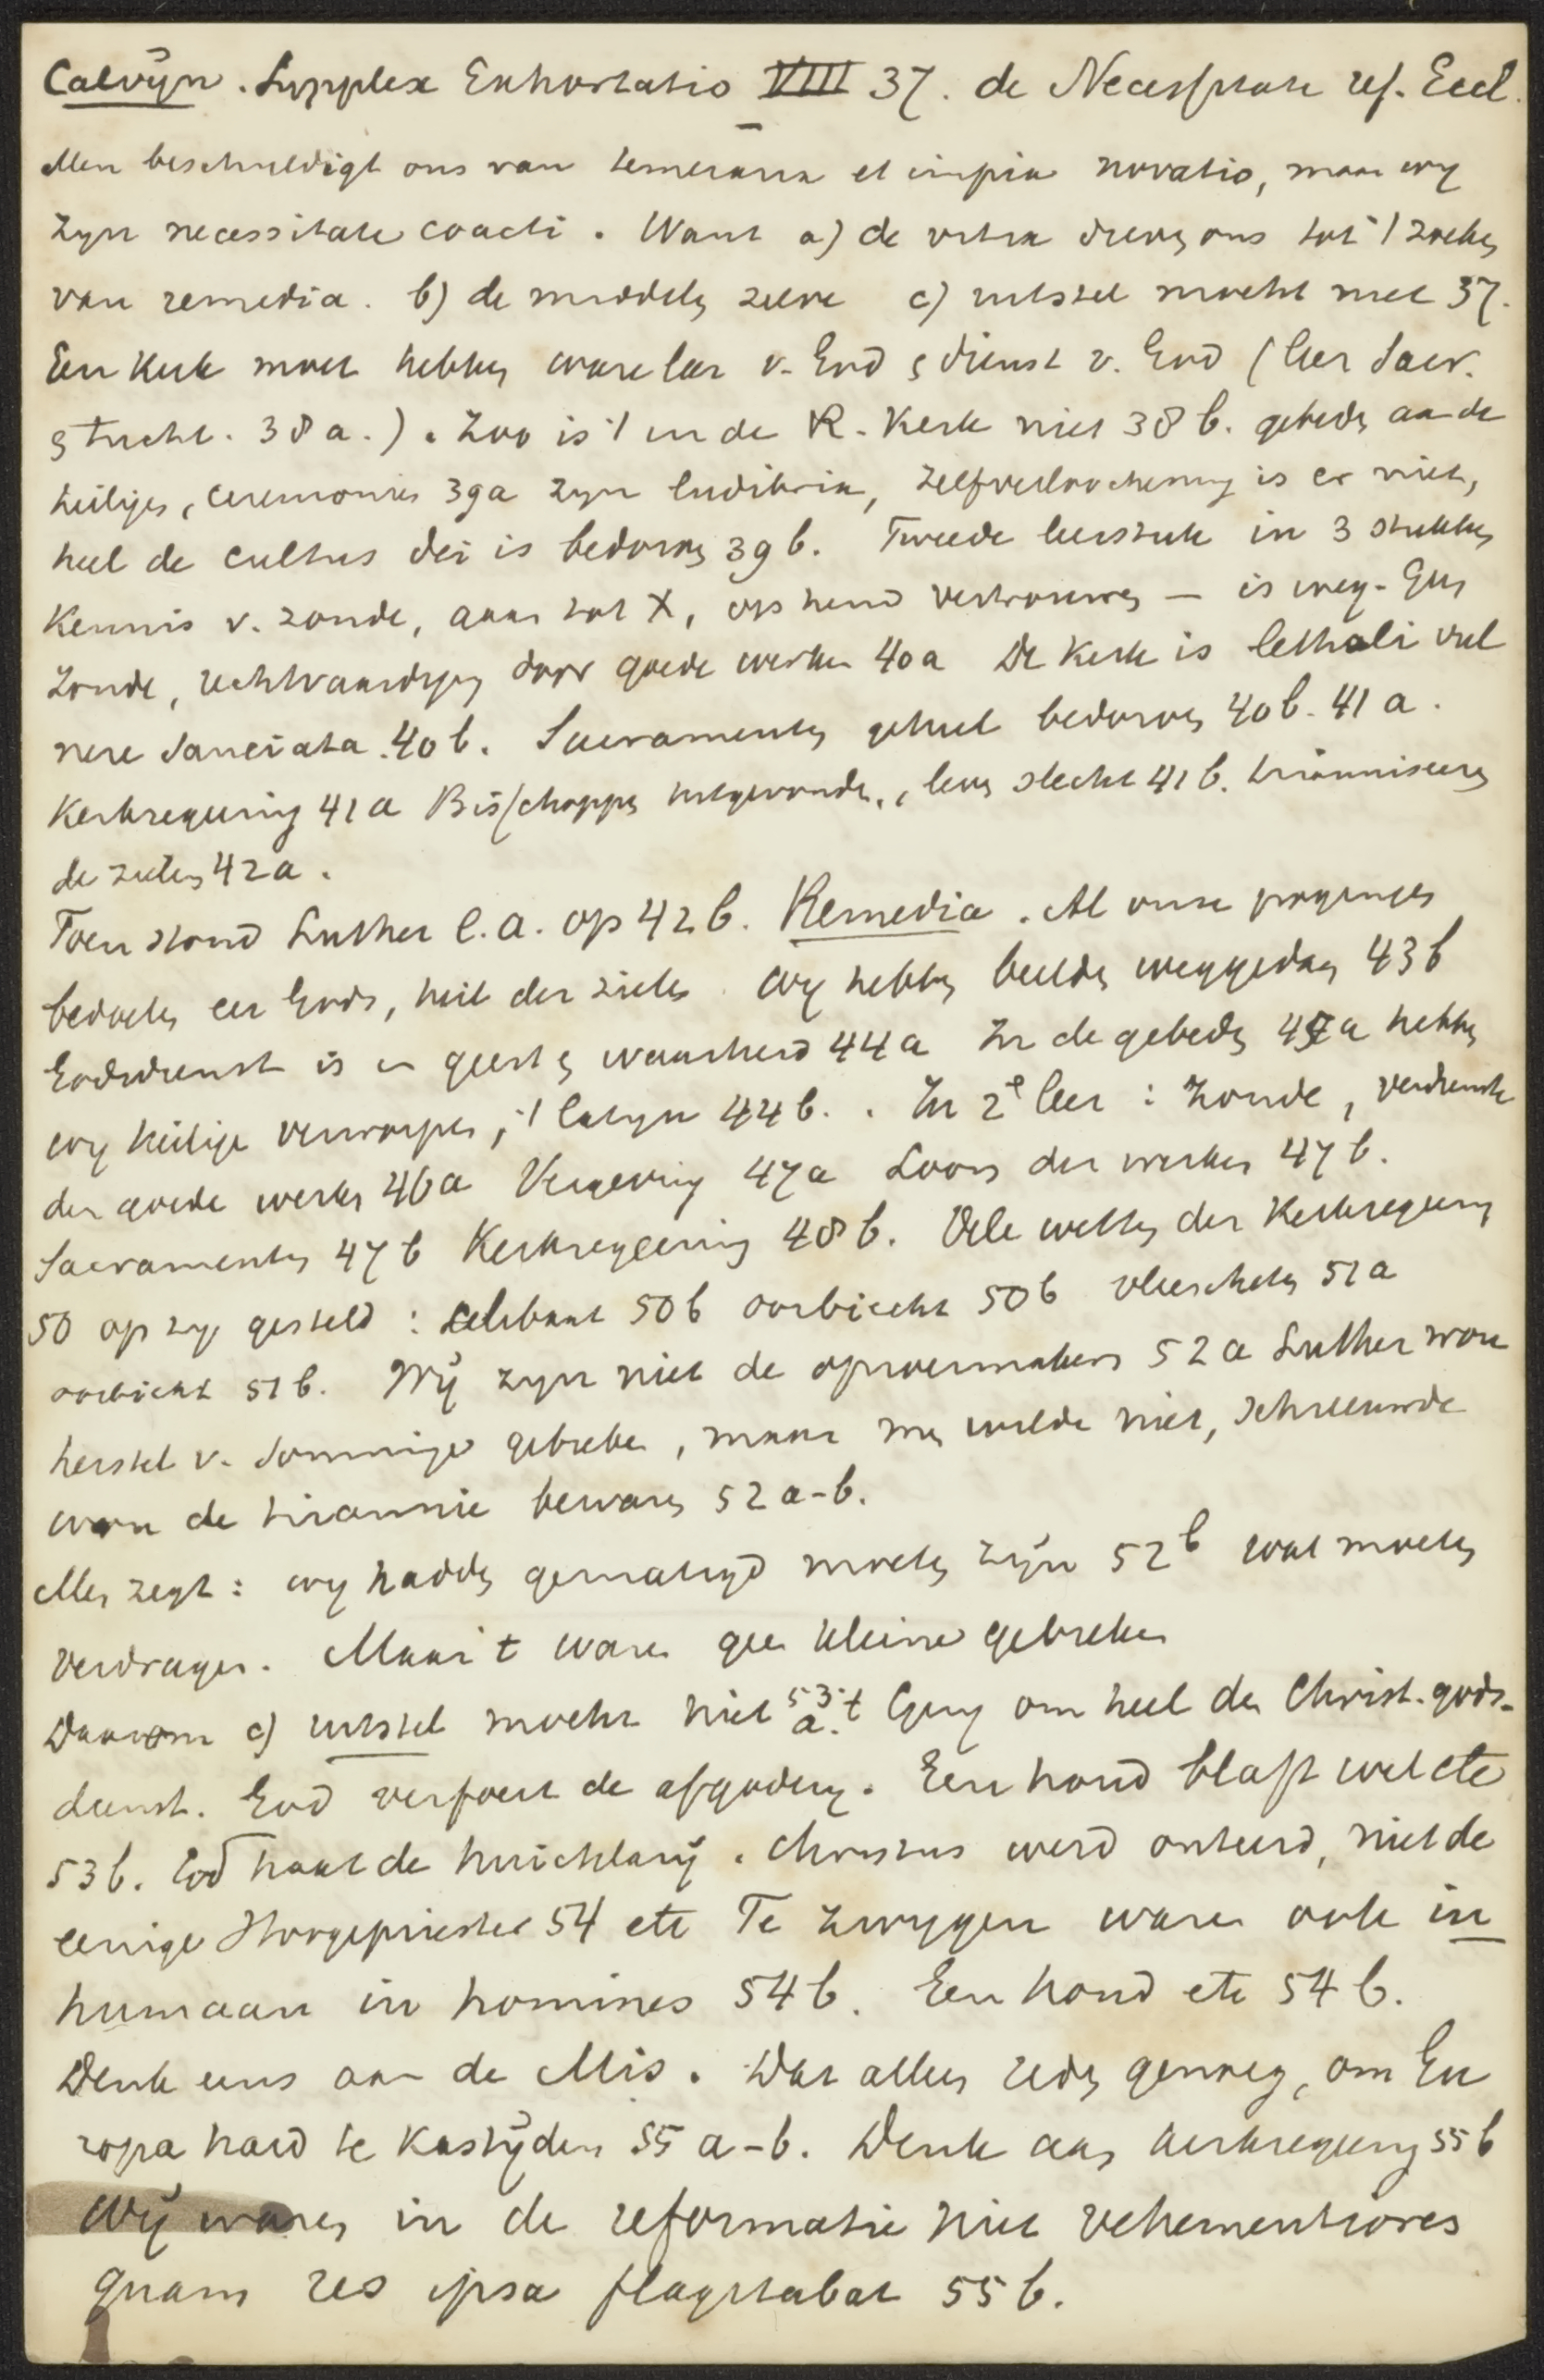 Calvÿn. Supplex Exhortatio VIII 37. de Necessitate ref. Eccl.
Men beschuldigt ons van temeraria et impia novatio, maar wy
zyn necessitate coacti. Want a) de vitia dreven ons tot 't zoeken
van remedia. b) de middelen zelve c) uitstel mocht niet 37.
Een kerk moet hebben ware leer v. God en dienst v. God (leer sacr.
en tucht. 38a.). Zoo is 't in de R. Kerk niet 38b. gebeden aan de
heiligen, ceremonies 39a zyn ludibria, zelfverloochening is er niet,
heel de cultus dei is bedorven 39b. Tweede leerstuk in 3 stukken
kennis v. zonde, gaan tot X, op hem vertrouwen — is weg.
zonde, rechtvaardiging door goede werken 40a De kerk is lethali vul
nere sanciata 40b. Sacramenten geheel bedorven 40b. 41a.
Kerkregering 41a Bisschoppen leven slecht 41b. tiranniseeren
de zielen 42a.
Toen stond Luther e.a. op 42b. Remedia. Al onze pogingen
bedoelen eer Gods, heil der zielen. Wy hebben beelden weggedaan 43b
Godsdienst is in geest en waarheid 44a In de gebeden 44a hebben
wy heilige verworpen, 't latyn 44b.. In 2e leer: zonde, verdienste
der goede werken 46a Vergeving 47a Loon der werken 47b.
Sacramenten 47b Kerkregeering 48b. Vele wetten der Kerkregering
50 op zy gesteld: celibaat 50b oorbiecht 50b vleescheten 51a
oorbiecht 51b. Wÿ zyn niet de oproermakers 52a Luther wou
herstel v. sommige gebreken, maar men wilde niet, schreeuwde
wou de tirannie bewaren 52a-b.
Men zegt: wy hadden gematigd moeten zÿn 52b wat moeten
verdragen. Maar t waren geen kleine gebreken
Daarom c) uitstel mocht niet 53a. t Ging om heel den Christ. gods-
dienst. God verfoeit de afgodery. Een hond blaft wel etc
53b. God haat de huichlarÿ. Christus werd onteerd, niet de
eenige Hoogepriester 54 etc Te zwygen ware ook in
humaan in homines 54b. Een hond etc 54b.
Denk eens aan de Mis. Dat alleen reden genoeg, om Eu
ropa hard te kastÿden 55a-b. Denk aan kerkregering 55b
Wÿ waren in de reformatie niet vehementiores
quam res ipsa flagitabat 55b.